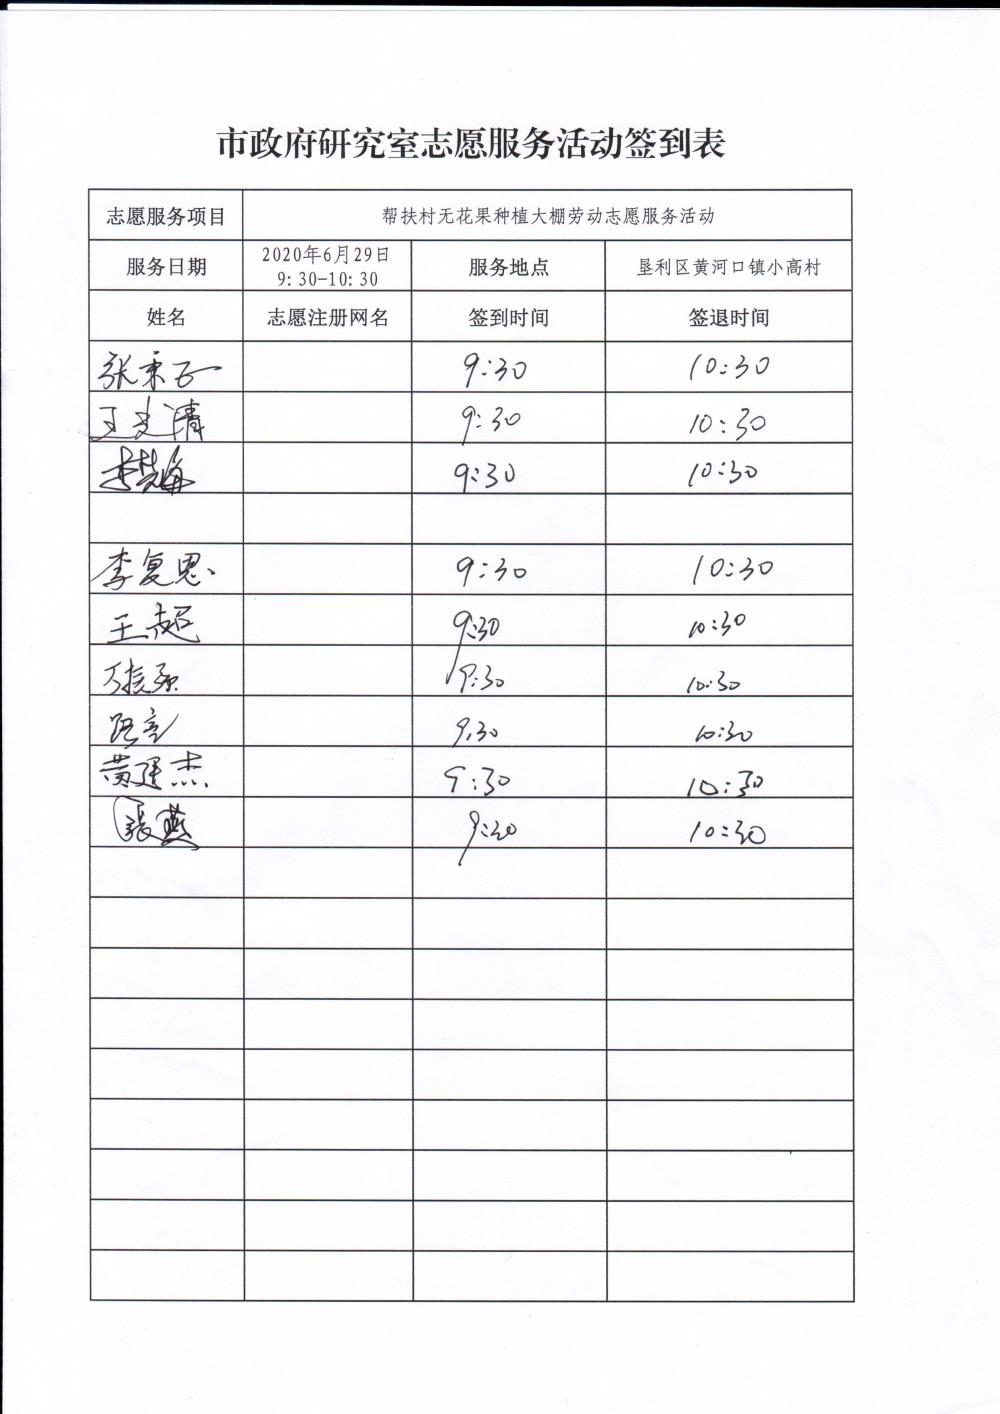 市政府研究室志愿服务活动签到表
志愿服务项目 帮扶村无花果种植大棚劳动志愿服务活动
服务日期 2020年6月29日 9:30-10:30 服务地点 垦利区黄河口镇小高村
姓名 志愿注册网名 签到时间 签退时间
张秉正 9:30 10:30
王文清 9:30 10:30
李 9:30 10:30
李复恩 9:30 10:30
王超 9:30 10:30
9:30 10:30
路 9:30 10:30
黄建杰 9:30 10:30
张燕 9:30 10:30